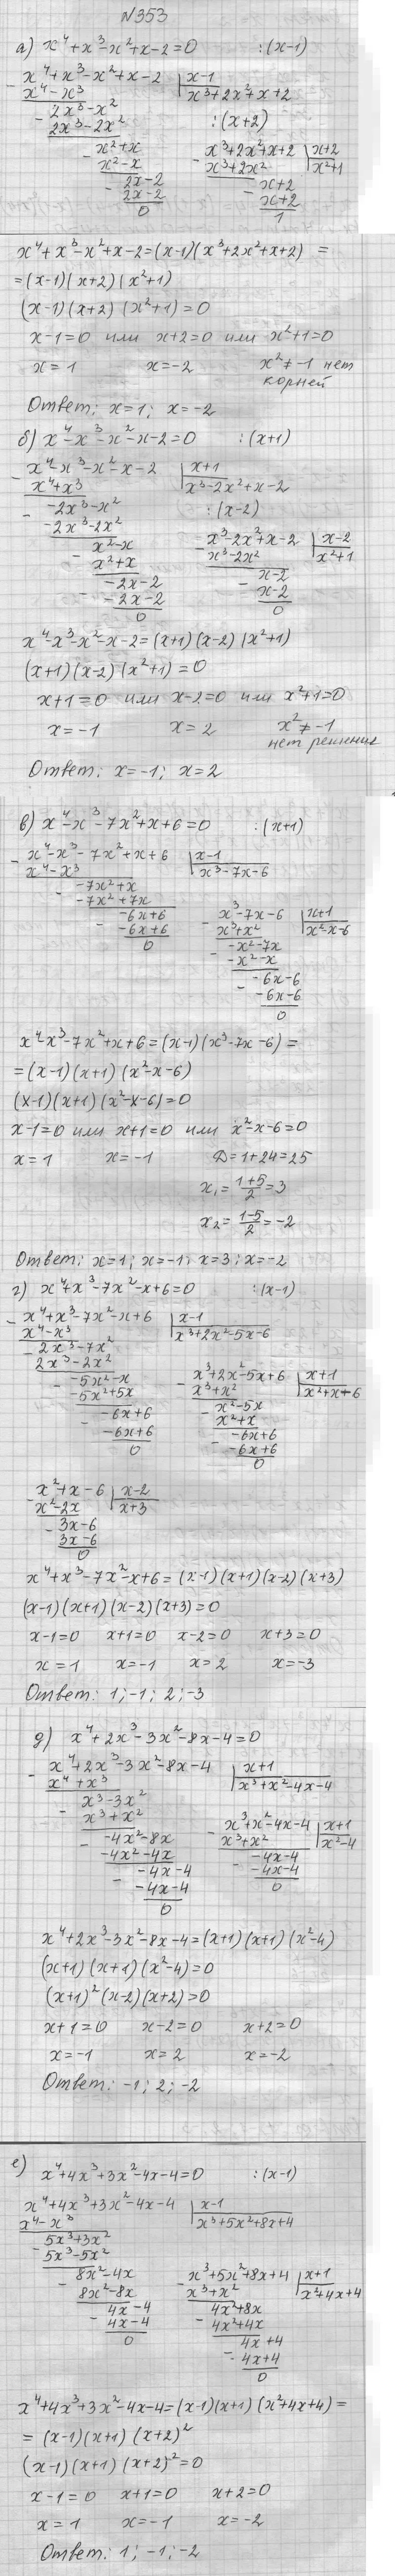 №353
а) x⁴+x³-x²+x-2=0 :(x-1)
x⁴+x³-x²+x-2 | x-1
x⁴-x³ x³+2x²+x+2
2x³-x²
2x³-2x² :(x+2)
x²+x x³+2x²+x+2 | x+2
x²-x x³+2x² x²+1
2x-2 x+2
2x-2 x+2
0 1
x⁴+x³-x²+x-2=(x-1)(x³+2x²+x+2) =
=(x-1)(x+2)(x²+1)
(x-1)(x+2)(x²+1)=0
x-1=0 или x+2=0 или x²+1=0
x=1 x=-2 x²≠-1 нет
корней
Ответ: x=1; x=-2
б) x⁴-x³-x²-x-2=0 :(x+1)
x⁴-x³-x²-x-2 | x+1
x⁴+x³ x³-2x²+x-2
-2x³-x² :(x-2)
-2x³-2x²
x²-x x³-2x²+x-2 | x-2
x²+x x³-2x² x²+1
-2x-2 x-2
-2x-2 x-2
0 0
x⁴-x³-x²-x-2=(x+1)(x-2)(x²+1)
(x+1)(x-2)(x²+1)=0
x+1=0 или x-2=0 или x²+1=0
x=-1 x=2 x²≠-1
нет решения
Ответ: x=-1; x=2
в) x⁴-x³-7x²+x+6=0 :(x+1)
x⁴-x³-7x²+x+6 | x-1
x⁴-x³ x³-7x-6
-7x²+x
-7x²+7x
-6x+6 x³-7x-6 | x+1
-6x+6 x³+x² x²-x-6
0 -x²-7x
-x²-x
-6x-6
-6x-6
0
x⁴-x³-7x²+x+6=(x-1)(x³-7x-6)=
=(x-1)(x+1)(x²-x-6)
(x-1)(x+1)(x²-x-6)=0
x-1=0 или x+1=0 или x²-x-6=0
x=1 x=-1 D=1+24=25
x₁=(1+5)/2=3
x₂=(1-5)/2=-2
Ответ: x=1; x=-1; x=3; x=-2
г) x⁴+x³-7x²-x+6=0 :(x-1)
x⁴+x³-7x²-x+6 | x-1
x⁴-x³ x³+2x²-5x-6
2x³-7x²
2x³-2x²
-5x²-x x³+2x²-5x+6 | x+1
-5x²+5x x³+x² x²+x+6
-6x+6 x²-5x
-6x+6 x²+x
0 -6x+6
-6x+6
0
x²+x-6 | x-2
x²-2x x+3
3x-6
3x-6
0
x⁴+x³-7x²-x+6=(x-1)(x+1)(x-2)(x+3)
(x-1)(x+1)(x-2)(x+3)=0
x-1=0 x+1=0 x-2=0 x+3=0
x=1 x=-1 x=2 x=-3
Ответ: 1; -1; 2; -3
д) x⁴+2x³-3x²-8x-4=0
x⁴+2x³-3x²-8x-4 | x+1
x⁴+x³ x³+x²-4x-4
x³-3x²
x³+x²
-4x²-8x x³+x²-4x-4 | x+1
-4x²-4x x³+x² x²-4
-4x-4 -4x-4
-4x-4 -4x-4
0 0
x⁴+2x³-3x²-8x-4=(x+1)(x+1)(x²-4)
(x+1)(x+1)(x²-4)=0
(x+1)²(x-2)(x+2)=0
x+1=0 x-2=0 x+2=0
x=-1 x=2 x=-2
Ответ: -1; 2; -2
е) x⁴+4x³+3x²-4x-4=0 :(x-1)
x⁴+4x³+3x²-4x-4 | x-1
x⁴-x³ x³+5x²+8x+4
5x³+3x²
5x³-5x²
8x²-4x x³+5x²+8x+4 | x+1
8x²-8x x³+x² x²+4x+4
4x-4 4x²+8x
4x-4 4x²+4x
0 4x+4
4x+4
0
x⁴+4x³+3x²-4x-4=(x-1)(x+1)(x²+4x+4)=
=(x-1)(x+1)(x+2)²
(x-1)(x+1)(x+2)²=0
x-1=0 x+1=0 x+2=0
x=1 x=-1 x=-2
Ответ: 1; -1; -2